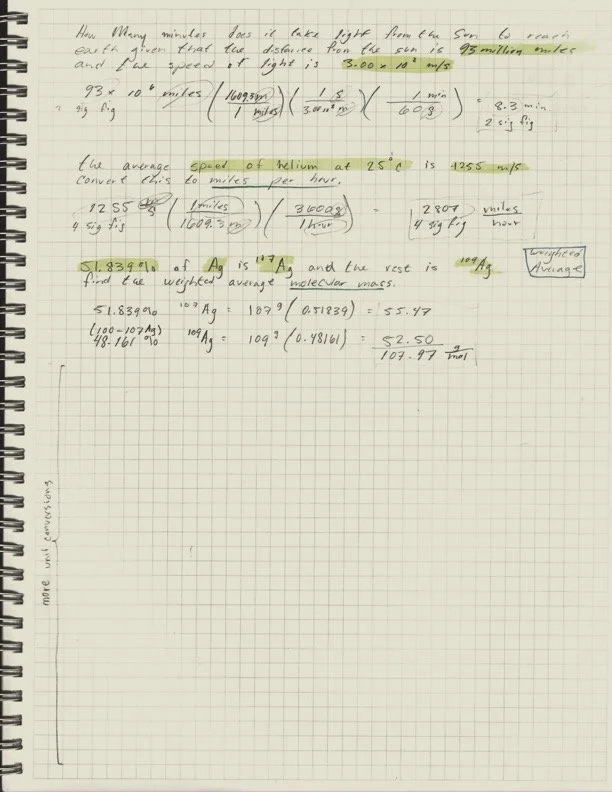 How Many minutes does it take light from the Sun to reach
earth given that the distance from the sun is 93 million miles
and the speed of light is 3.00 x 10⁸ m/s
93 x 10⁶ miles (1609.3m / 1 miles) (1 s / 3.00x10⁸ m) (1 min / 60 s) = 8.3 min
2 sig fig
2 sig fig
the average speed of helium at 25°C is 1255 m/s
convert this to miles per hour.
1255 m/s (1 miles / 1609.3 m) (3600s / 1 hour) = 2807 miles/hour
4 sig fig
4 sig fig
51.839% of Ag is ¹⁰⁷Ag and the rest is ¹⁰⁹Ag
Weighted
Average
find the weighted average molecular mass.
51.839% ¹⁰⁷Ag = 107 g (0.51839) = 55.47
(100-107Ag)
48.161% ¹⁰⁹Ag = 109 g (0.48161) = 52.50
107.97 g/mol
more unit conversions